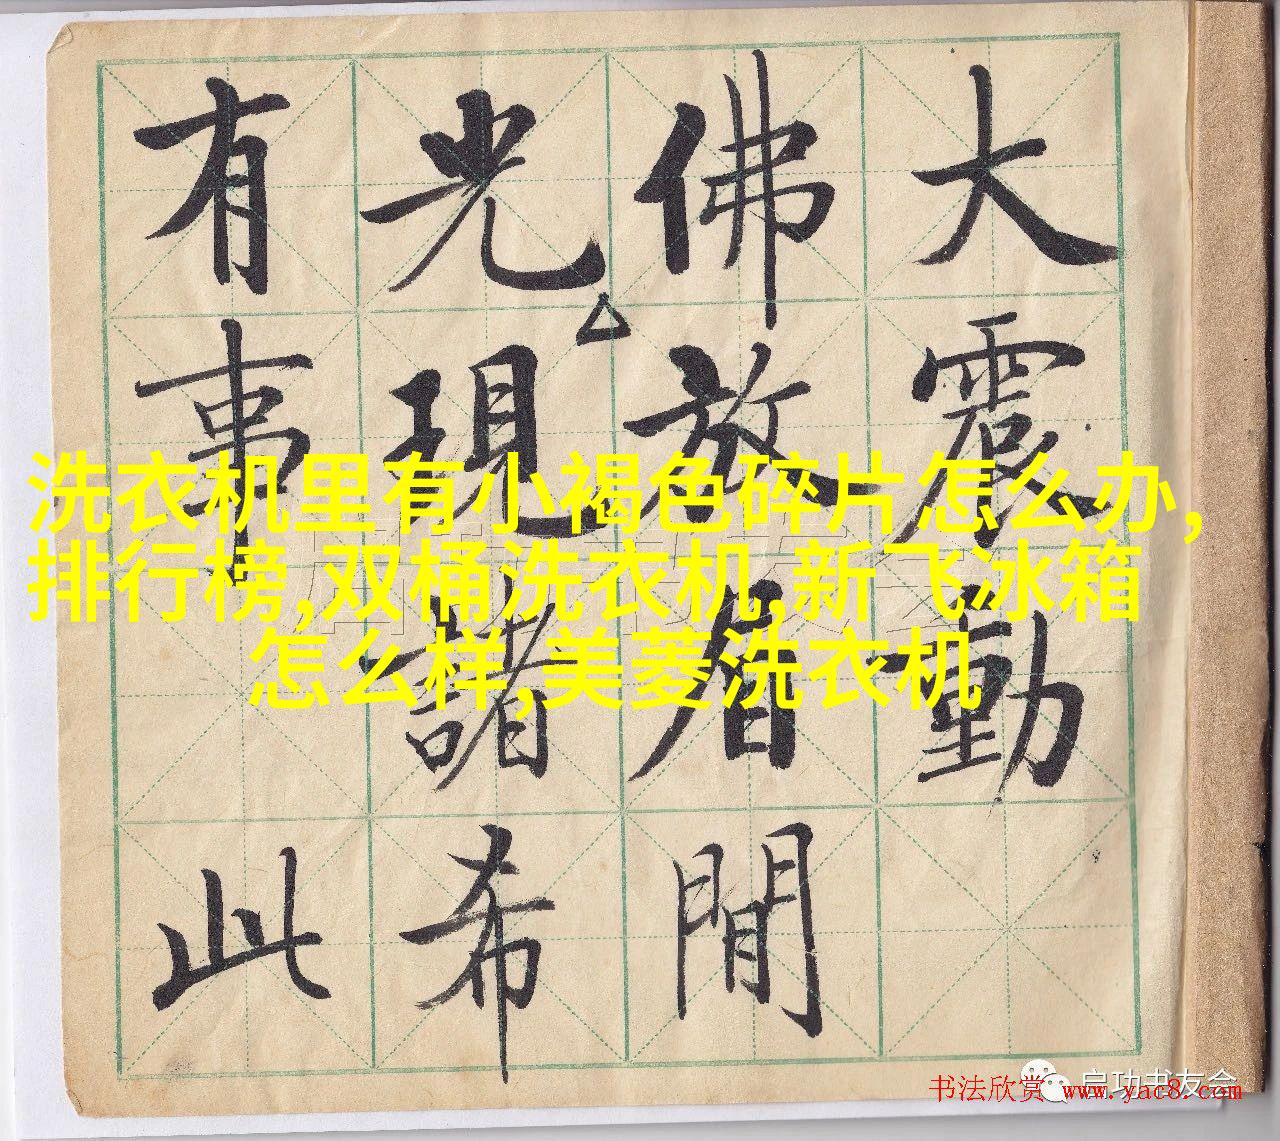 大震動
佛放眉間
光現諸希
有事此
洗衣机里有小褐色碎片怎么办,
排行榜,双桶洗衣机,新飞冰箱
怎么样,美菱洗衣机
启功书友会
书法欣赏 www.yac8.com